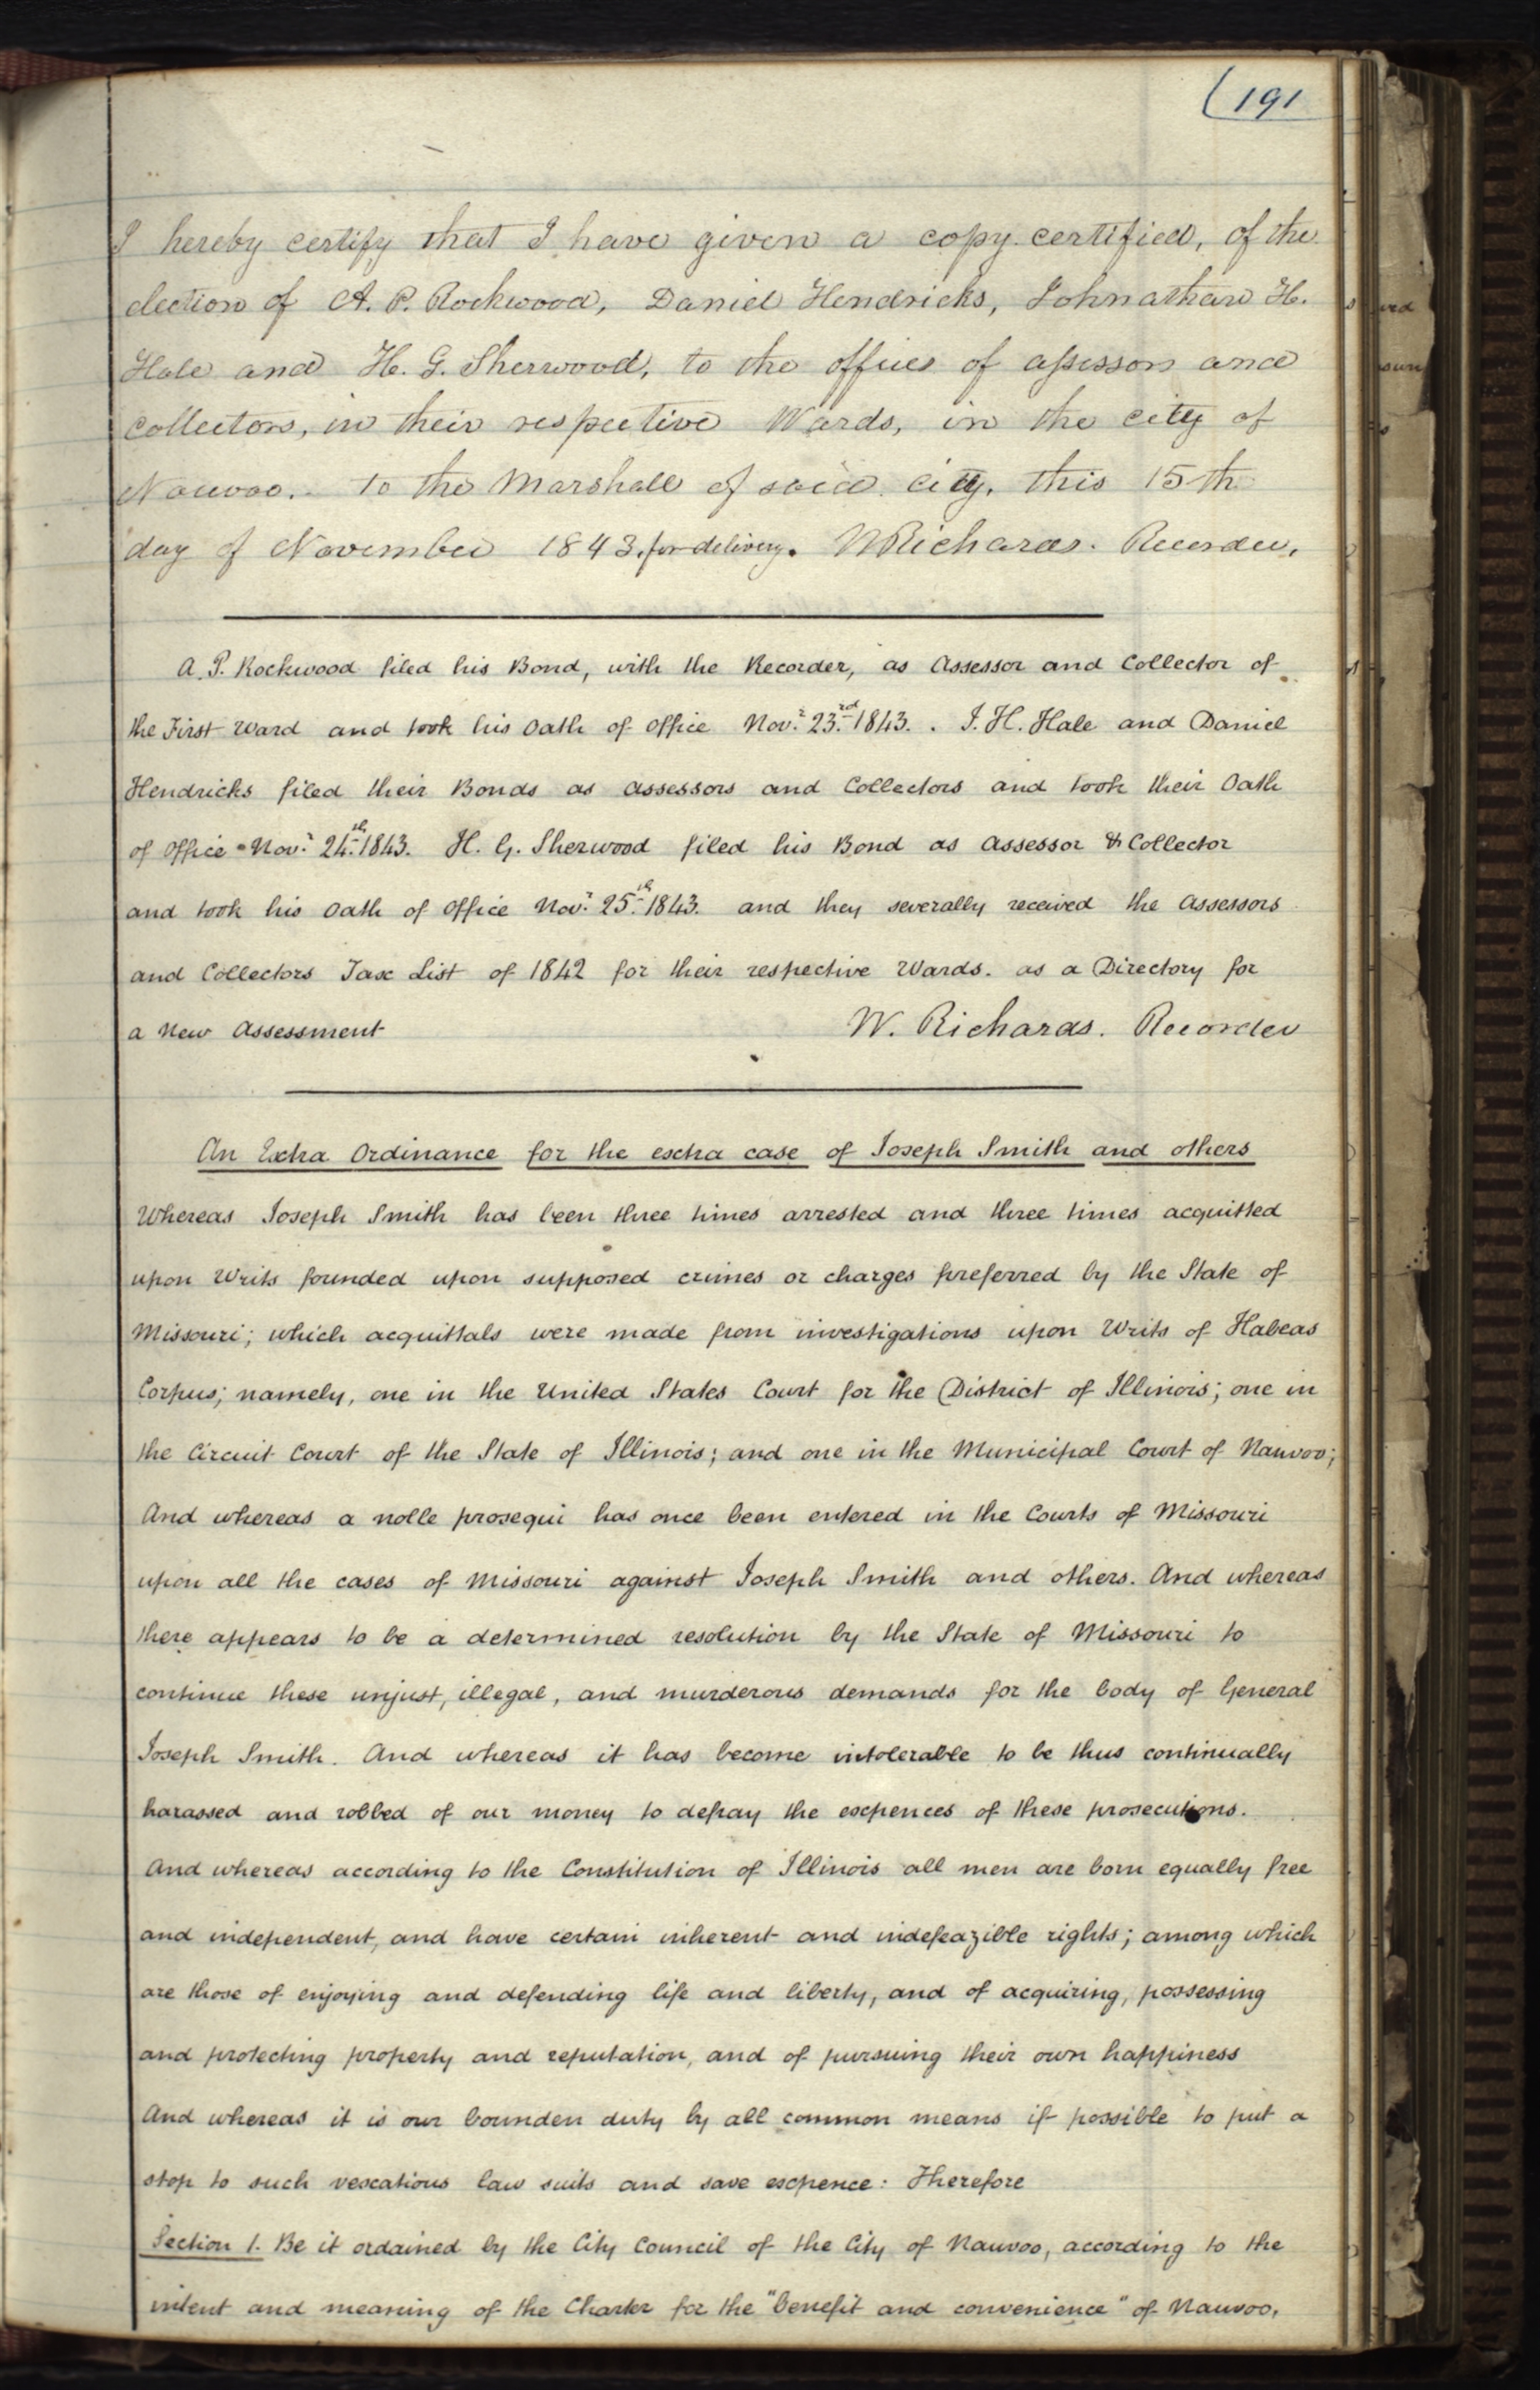 (191
I hereby certify that I have given a copy certified, of the
election of A. P. Rockwood, Daniel Hendricks, Johnathan H.
Hale and H. G. Sherwood, to the offices of assessors and
collectors, in their respective Wards, in the city of
Nauvoo. to the Marshall of said city, this 15th
day of November 1843, for delivery. W Richards. Recorder.
A. P. Rockwood filed his Bond, with the Recorder, as Assessor and Collector of
the First Ward and took his Oath of Office Novr. 23rd 1843. . J. H. Hale and Daniel
Hendricks filed their Bonds as Assessors and Collectors and took their Oath
of Office Novr. 24th 1843. H. G. Sherwood filed his Bond as Assessor & Collector
and took his Oath of Office Novr. 25th 1843. and they severally received the Assessors
and Collectors Tax List of 1842 for their respective Wards. as a Directory for
a New Assessment W. Richards. Recorder
An Extra Ordinance for the extra case of Joseph Smith and others
Whereas Joseph Smith has been three times arrested and three times acquitted
upon Writs founded upon supposed crimes or charges preferred by the State of
Missouri; which acquittals were made from investigations upon Writs of Habeas
Corpus; namely, one in the United States Court for the District of Illinois; one in
the Circuit Court of the State of Illinois; and one in the Municipal Court of Nauvoo;
And whereas a nolle prosequi has once been entered in the Courts of Missouri
upon all the cases of Missouri against Joseph Smith and others. And whereas
there appears to be a determined resolution by the State of Missouri to
continue these unjust, illegal, and murderous demands for the body of General
Joseph Smith. And whereas it has become intolerable to be thus continually
harassed and robbed of our money to defray the expences of these prosecutions.
And whereas according to the Constitution of Illinois all men are born equally free
and independent, and have certain inherent and indefeazible rights; among which
are those of enjoying and defending life and liberty, and of acquiring, possessing
and protecting property and reputation, and of pursuing their own happiness
And whereas it is our bounden duty by all common means if possible to put a
stop to such vexatious law suits and save expence: Therefore
Section 1. Be it ordained by the City Council of the City of Nauvoo, according to the
intent and meaning of the Charter for the "benefit and convenience" of Nauvoo,